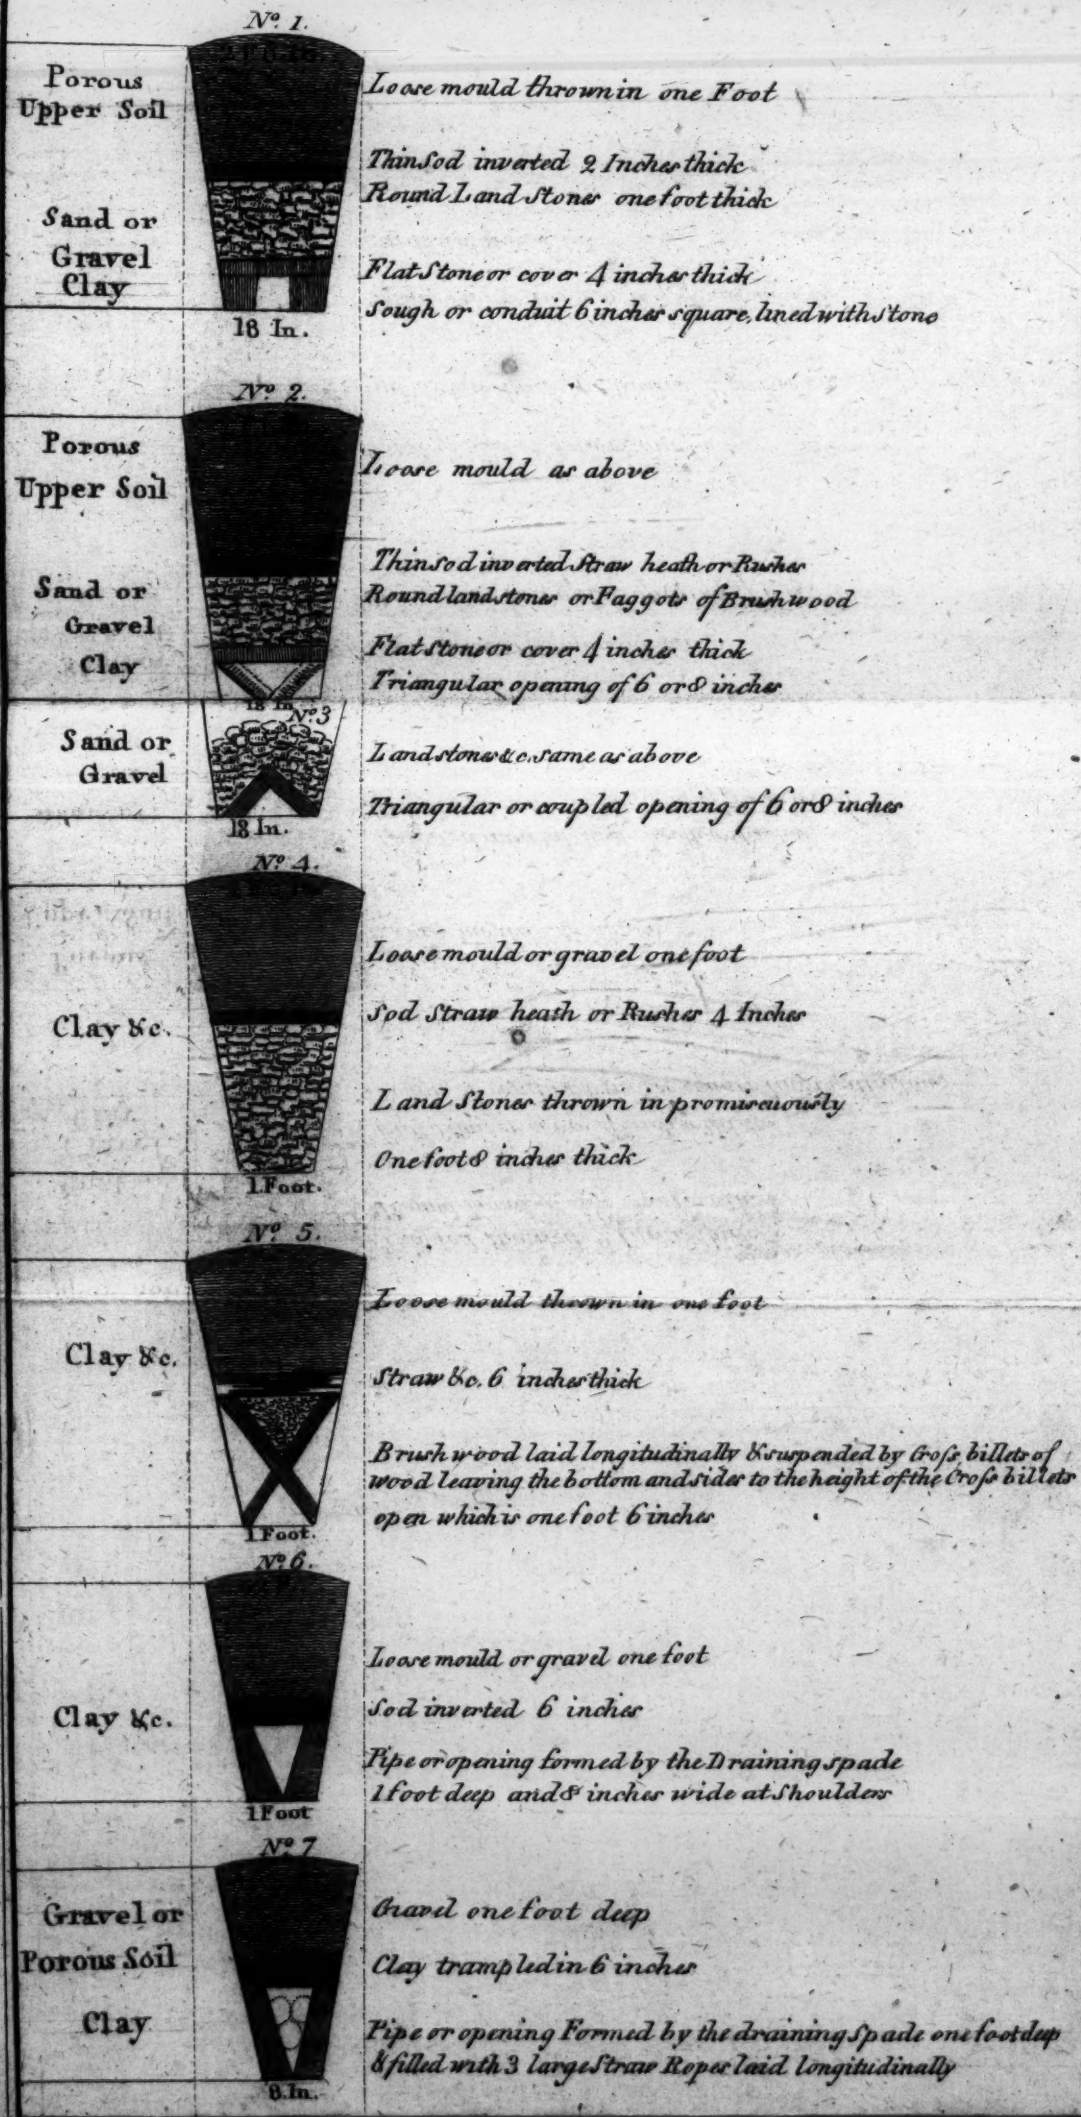 No. 1.
Porous
Upper Soil
Loose mould thrown in one Foot
Thin Sod inverted 2 Inches thick
Round Land Stones one foot thick
Sand or
Gravel
Clay
Flat Stone or cover 4 inches thick
Sough or conduit 6 inches square, lined with Stone
18 In.
No. 2.
Porous
Upper Soil
Loose mould as above
Thin sod inverted Straw heath or Rushes
Round land stones or Faggots of Brush wood
Sand or
Gravel
Clay
Flat Stone or cover 4 inches thick
Triangular opening of 6 or 8 inches
18 In.
No. 3
Sand or
Gravel
Land stones &c. same as above
Triangular or coupled opening of 6 or 8 inches
18 In.
No. 4.
Clay &c.
Loose mould or gravel one foot
Sod Straw heath or Rushes 4 Inches
Land Stones thrown in promiscuously
One foot 8 inches thick
1 Foot.
No. 5.
Clay &c.
Loose mould thrown in one foot
Straw &c. 6 inches thick
Brush wood laid longitudinally & suspended by Croſs billets of
wood leaving the bottom and sides to the height of the Croſs billets
open which is one foot 6 inches
1 Foot.
No. 6.
Clay &c.
Loose mould or gravel one foot
Sod inverted 6 inches
Pipe or opening formed by the Draining spade
1 foot deep and 8 inches wide at Shoulders
1 Foot
No. 7
Gravel or
Porous Soil
Clay
Gravel one foot deep
Clay trampled in 6 inches
Pipe or opening Formed by the draining Spade one foot deep
& filled with 3 large Straw Ropes laid longitudinally
8 In.